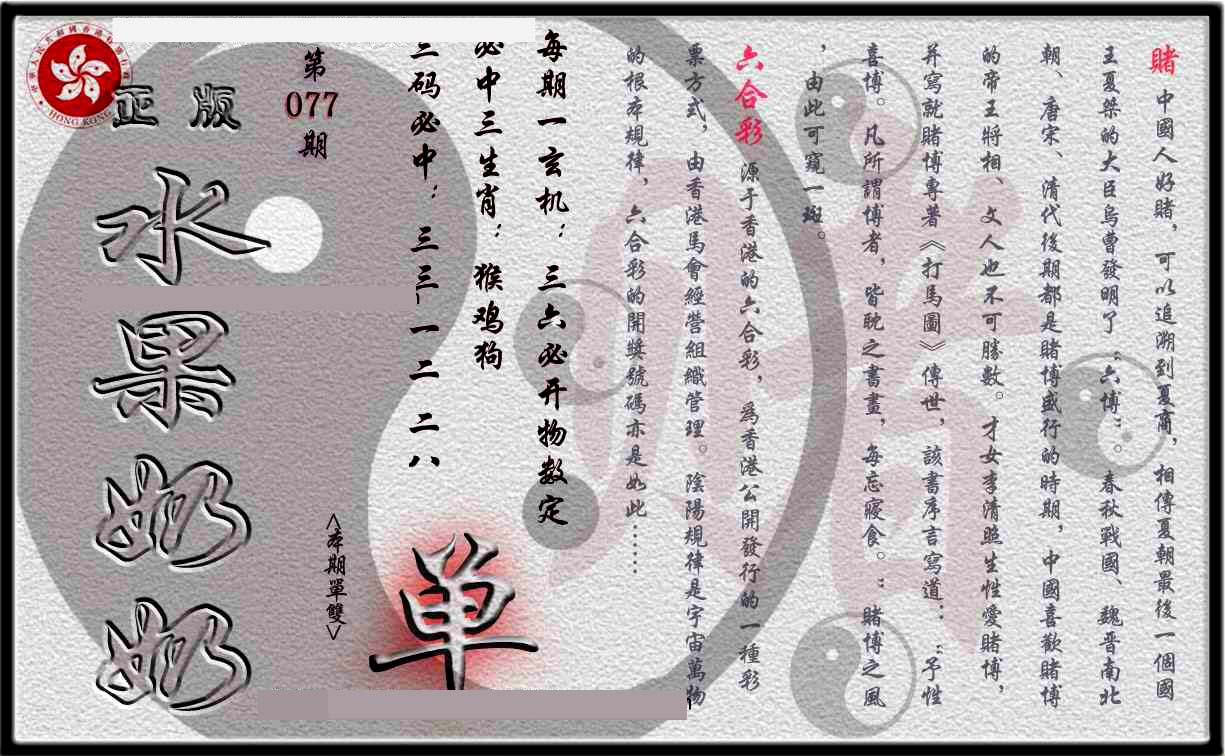 賭 中國人好賭，可以追溯到夏商，相傳夏朝最後一個國
王夏桀的大臣烏曹發明了“六博”。春秋戰國、魏晉南北
朝、唐宋、清代後期都是賭博盛行的時期，中國喜歡賭博
的帝王將相、文人也不可勝數。才女李清照生性愛賭博，
并寫就賭博專著《打馬圖》傳世，該書序言寫道：“予性
喜博。凡所謂博者，皆耽之晝晝，每忘寢食。”賭博之風
，由此可窺一斑。
六合彩 源于香港的六合彩，為香港公開發行的一種彩
票方式，由香港馬會經營組織管理。陰陽規律是宇宙萬物
的根本規律，六合彩的開獎號碼亦是如此……
每期一玄机：三六必开物数定
必中三生肖：猴鸡狗
三码必中：三三一二二八
单
<本期單雙>
第
077
期
正版
水果奶奶
HONG KONG